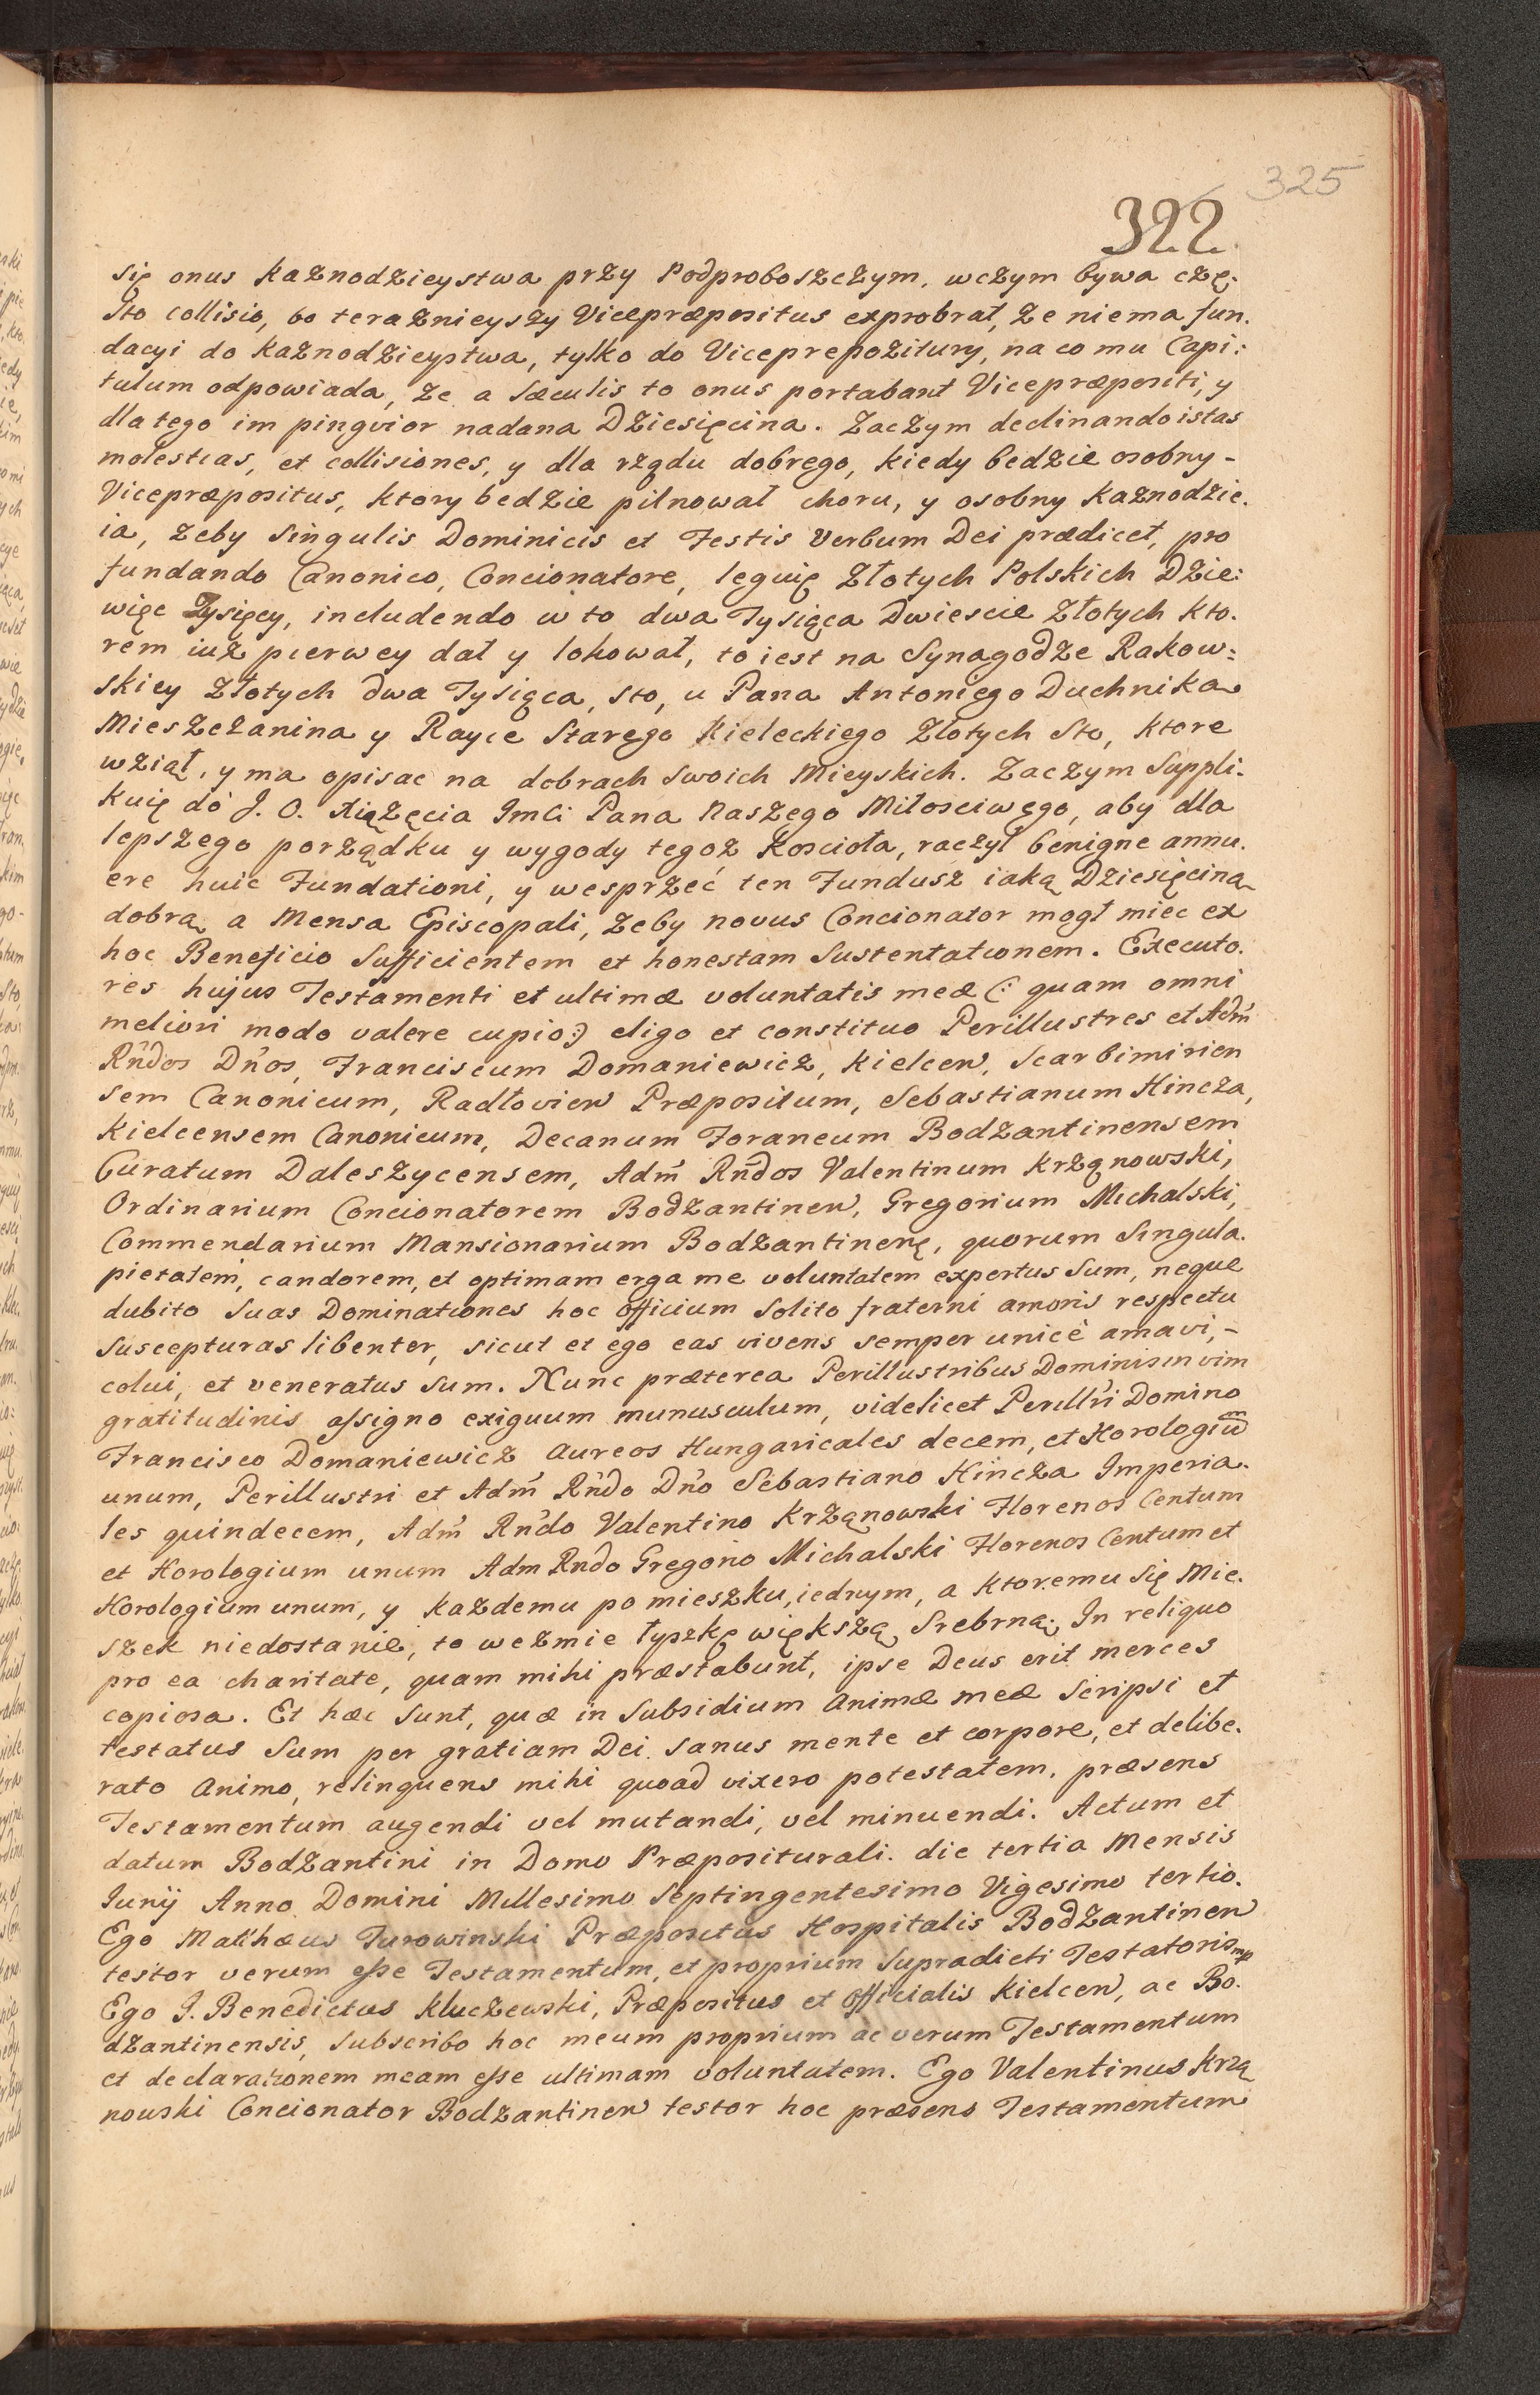 325
322
się onus Kaznodzieystwa przy Podproboszczym, wczym bywa czę.
sto collisio, bo teraznieyszy Vicepræpositus exprobrat, ze niema fun.
dacyi do Kaznodzieystwa, tylko do Viceprepozitury, na co mu Capi:
tulum odpowiada, ze a sæculis to onus portabant Vicepræpositi, y
dla tego im pingvior nadana Dziesięcina. Zaczym declinando istas
molestias, et collisiones, y dla rządu dobrego, kiedy bedzie osobny -
Vicepræpositus, ktory bedzie pilnował choru, y osobny Kaznodzie.
ia, zeby singulis Dominicis et Festis Verbum Dei prædicet, pro
fundando Canonico, Concionatore, leguię Złotych Polskich Dzie:
więc Tysięcy, includendo w to dwa Tysiąca Dwiescie Złotych kto.
rem iuż pierwey dał y lokował, to iest na Synagodze Rakow:
skiey Złotych dwa Tysiąca, sto, u Pana Antoniego Duchnika
Mieszczanina y Rayce Starego Kieleckiego Złotych sto, ktore
wziął, y ma opisac na dobrach swoich Mieyskich. Zaczym suppli.
kuię do J. O. Xiążęcia Imci Pana Naszego Miłosciwego, aby dla
lepszego porządku y wygody tegoz Kosciola, raczył benigne annu.
ere huic Fundationi, y wesprzeć ten Fundusz iaką Dziesięciną
dobrą a Mensa Episcopali, zeby novus Concionator mogł miec ex
hoc Beneficio sufficientem et honestam sustentationem. Executo.
res hujus Testamenti et ultimæ voluntatis meæ (: quam omni
meliori modo valere cupio :) eligo et constituo Perillustres et Adm̃
Rñdos Dños, Franciscum Domaniewicz, Kielcen, Scarbimirien
sem Canonicum, Radłovien Præpositum, Sebastianum Hincza,
Kielcensem Canonicum, Decanum Foraneum Bodzantinensem
Curatum Daleszycensem, Adm̃ Rñdos Valentinum Krząnowski,
Ordinarium Concionatorem Bodzantinen, Gregorium Michalski,
Commendarium Mansionarium Bodzantinenę, quorum singula.
pietatem, candorem, et optimam erga me voluntatem expertus sum, neque
dubito suas Dominationes hoc officium solito fraterni amoris respectu
suscepturas libenter, sicut et ego eas vivens semper unicè amavi, -
colui, et veneratus sum. Nunc præterea Perillustribus Dominis in vim
gratitudinis assigno exiguum munusculum, videlicet Perillri Domino
Francisco Domaniewicz Aureos Hungaricales decem, et Horologiũm
unum, Perillustri et Adm̃ Rñdo Dño Sebastiano Hincza Imperia.
les quindecem, Adm̃ Rñdo Valentino Krząnowski Florenos Centum
et Horologium unum Adm Rndo Gregorio Michalski Florenos Centum et
Horologium unum, y kazdemu po mieszku, iednym, a ktoremu się Mie.
szek niedostanie, to wezmie łyszkę większą srebrną; In reliquo
pro ea charitate, quam mihi præstabunt, ipse Deus erit merces
copiosa. Et hæc sunt, quæ in subsidium animæ meæ scripsi et
testatus sum per gratiam Dei sanus mente et corpore, et delibe.
rato animo, relinquens mihi quoad vixero potestatem, præsens
Testamentum augendi vel mutandi, vel minuendi. Actum et
datum Bodzantini in Domo Præpositurali. die tertia Mensis
Junij Anno Domini Millesimo Septingentesimo Vigesimo tertio.
Ego Matthæus Turowinski Præpositus Hospitalis Bodzantinen
testor verum esse Testamentum, et proprium supradicti Testatoris mp
Ego J. Benedictus Kluczewski, Præpositus et Officialis Kielcen, ac Bo.
dzantinensis, subscribo hoc meum proprium ac verum Testamentum
et declarationem meam esse ultimam voluntatem. Ego Valentinus Krzą
nowski Concionator Bodzantinen testor hoc præsens Testamentum